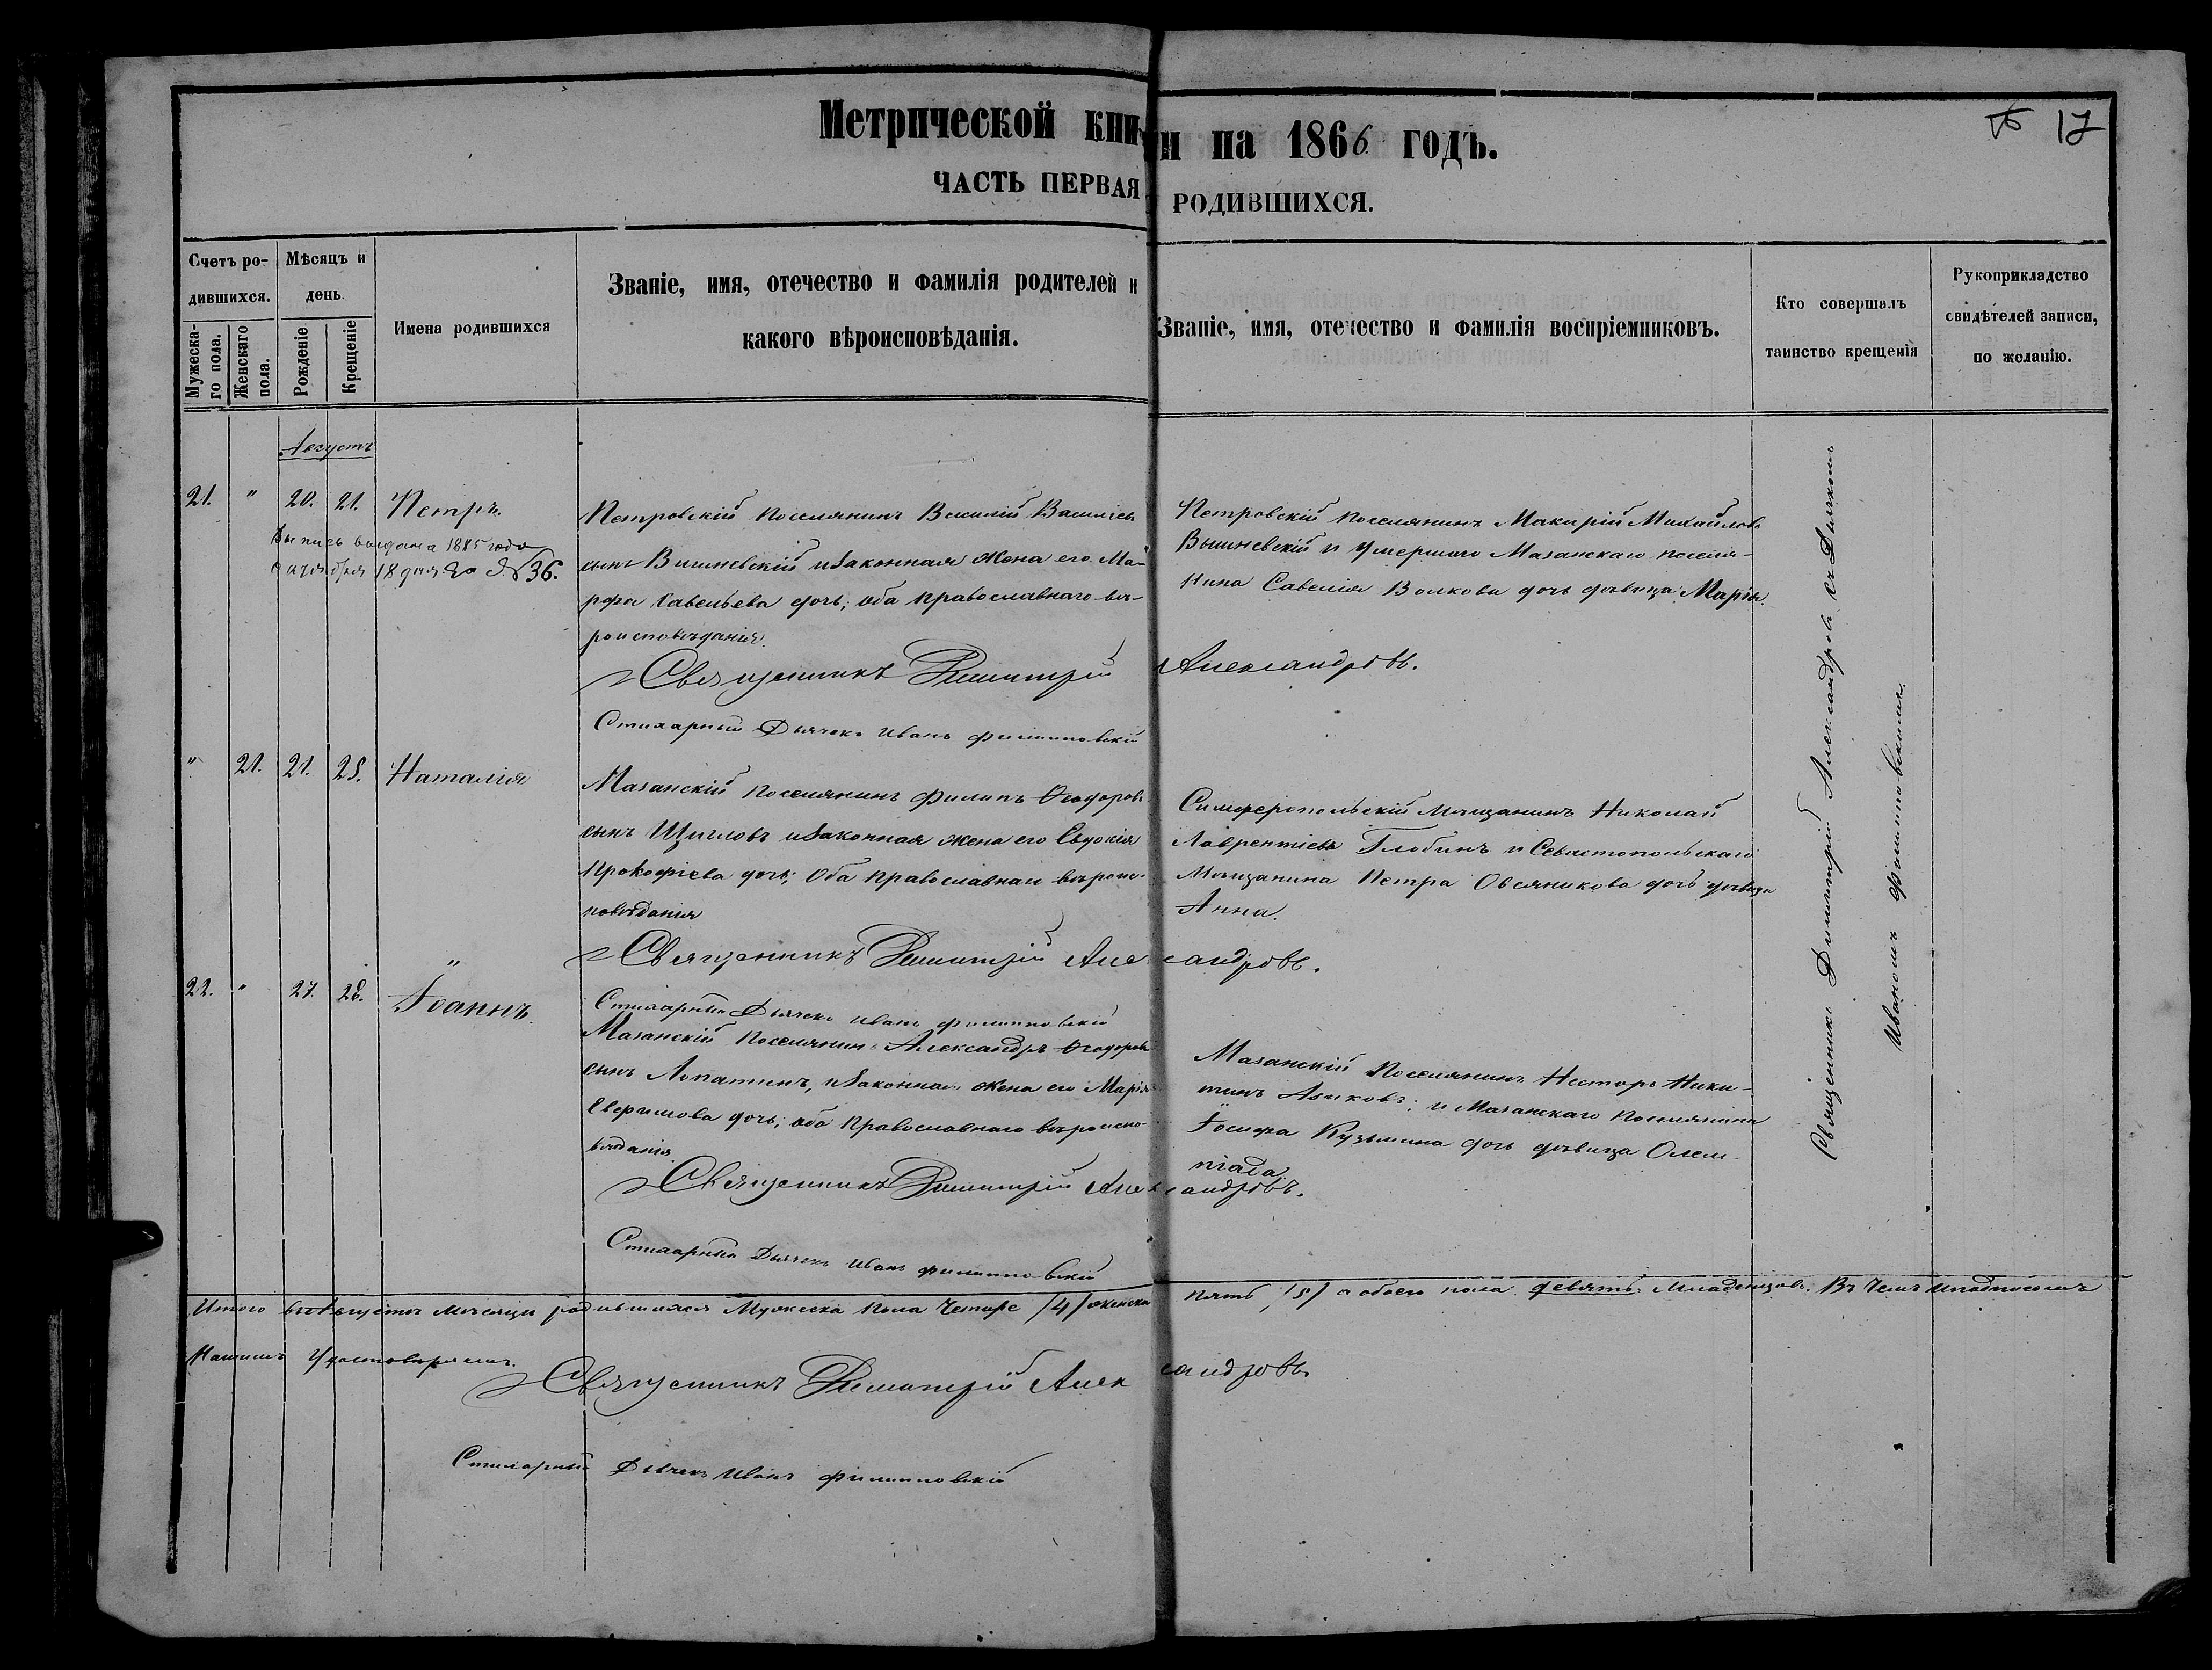 Метрической книги на 1866 годъ.
17
ЧАСТЬ ПЕРВАЯ РОДИВШИХСЯ.
Счетъ ро-
дившихся.
Мужеска-
го пола.
Женскаго
пола.
Мѣсяцъ и
день
Рожденіе
Крещеніе
Имена родившихся
Званіе, имя, отечество и фамилія родителей и
какого вѣроисповѣданія.
Званіе, имя, отечество и фамилія воспріемниковъ.
Кто совершалъ
таинство крещенія
Рукоприкладство
свидѣтелей записи,
по желанію.
Августъ
21. " 20. 21. Петръ.
Выпись выдана 1885 года
октября 18 дня за №36.
Петровскій поселянинъ Василій Васильевъ
сынъ Вишневскій и законная жена его Ма-
рфа Савельева дочь; оба православнаго вѣ-
роисповѣданія.
Петровскій поселянинъ Макарій Михайловъ
Вышневскій и умершаго Мазанскаго поселя-
нина Савелія Волкова дочь дѣвица Марія.
Священникъ Димитрій Александровъ.
Стихарный Дьячекъ Иванъ Филипповскій
" 21. 21. 25. Наталія
Мазанскій поселянинъ Филипъ Ѳеодоровъ
сынъ Щигловъ и законная жена его Евдокія
Прокофіева дочь; Оба православнаго вѣроис-
повѣданія
Симферопольскій Мѣщанинъ Николай
Лаврентіевъ Глобинъ и Севастопольскаго
Мѣщанина Петра Овсяникова дочь дѣвица
Анна.
Священникъ Димитрій Александровъ.
Стихарный Дьячекъ Иванъ Филипповскій
22. " 27. 28. Іоаннъ.
Мазанскій Поселянинъ Александръ Ѳеодоровъ
сынъ Лопатинъ, и законная жена его Марія
Ефимова дочь; оба Православнаго вѣроиспо-
вѣданія
Мазанскій Поселянинъ Несторъ Ники-
тинъ Азиковъ; и Мазанскаго поселянина
Іосифа Кузьмина дочь дѣвица Олим-
піада.
Священникъ Димитрій Александровъ.
Стихарный Дьячекъ Иванъ Филипповскій
Священникъ Димитрій Александровъ съ Дьячкомъ
Иваномъ Филипповскимъ.
Итого въ Августѣ мѣсяцѣ родившихся Мужеска пола Четыре /4/ женска пять /5/ а обоего пола девять младенцовъ. Въ чемъ и подписомъ
Нашимъ Удостовѣряемъ.
Священникъ Димитрій Александровъ.
Стихарный Дьячекъ Иванъ Филипповскій